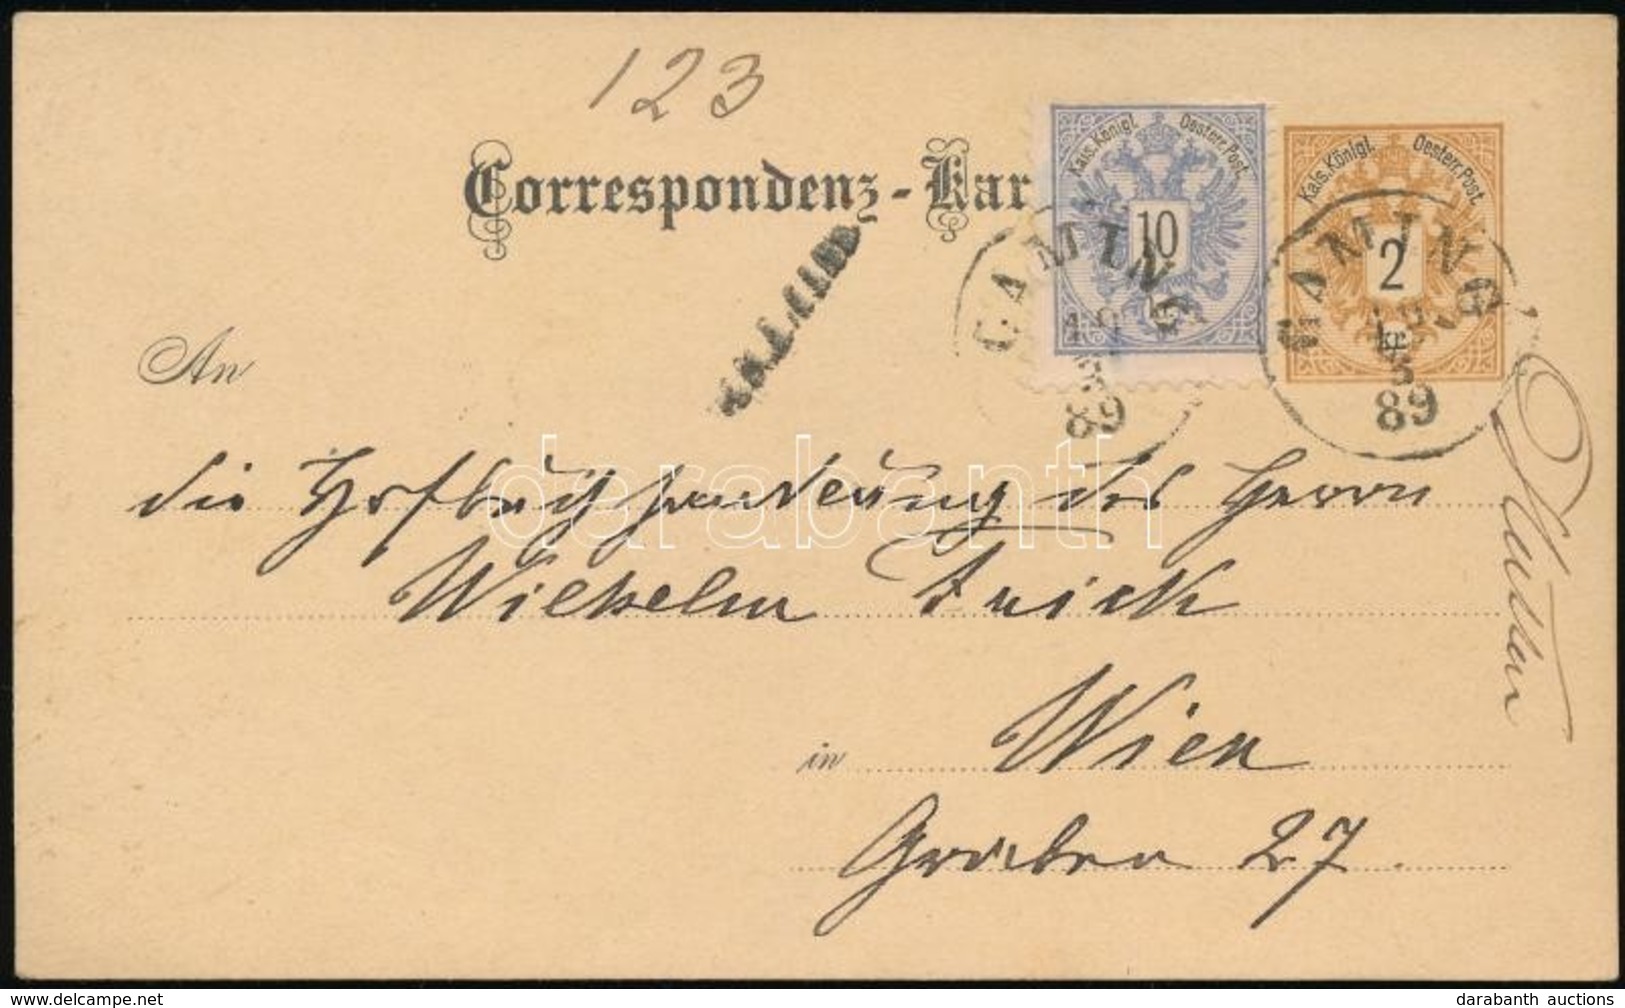 123
Correspondenz-Kar
Kais. Königl. Oesterr. Post.
10
Kais. Königl. Oesterr. Post.
2
kr.
GAMING
89
GAMING
5
89
An
die Hofbuchhandlung des Herrn
Wilhelm Frick
in Wien
Graben 27.
darabanth
delcampe.net
darabanth auctions